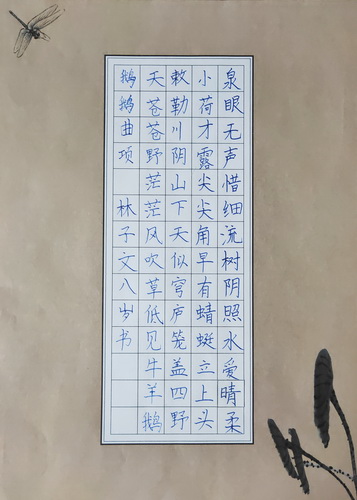 泉眼无声惜细流树阴照水爱晴柔
小荷才露尖尖角早有蜻蜓立上头
敕勒川阴山下天似穹庐笼盖四野
天苍苍野茫茫风吹草低见牛羊鹅
鹅鹅曲项 林子文八岁书